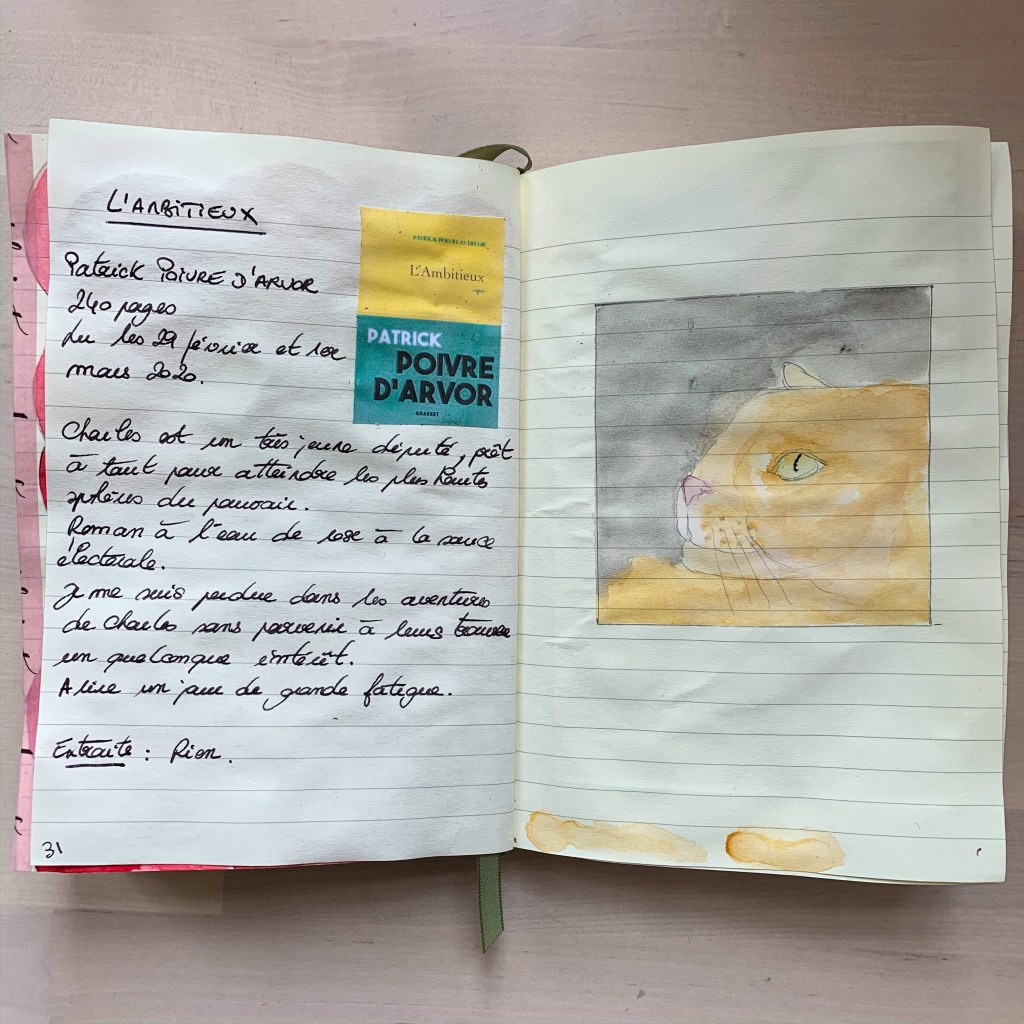 L'AMBITIEUX
Patrick POIVRE D'ARVOR
240 pages
Lu les 29 février et 1er
mars 2020.
PATRICK POIVRE D'ARVOR
L'Ambitieux
PATRICK
POIVRE
D'ARVOR
GRASSET
Charles est un très jeune député, prêt
à tout pour atteindre les plus hautes
sphères du pouvoir.
Roman à l'eau de rose à la sauce
électorale.
Je me suis perdue dans les aventures
de Charles sans parvenir à leurs trouver
un quelconque intérêt.
A lire un jour de grande fatigue.
Extraits : Rien.
31